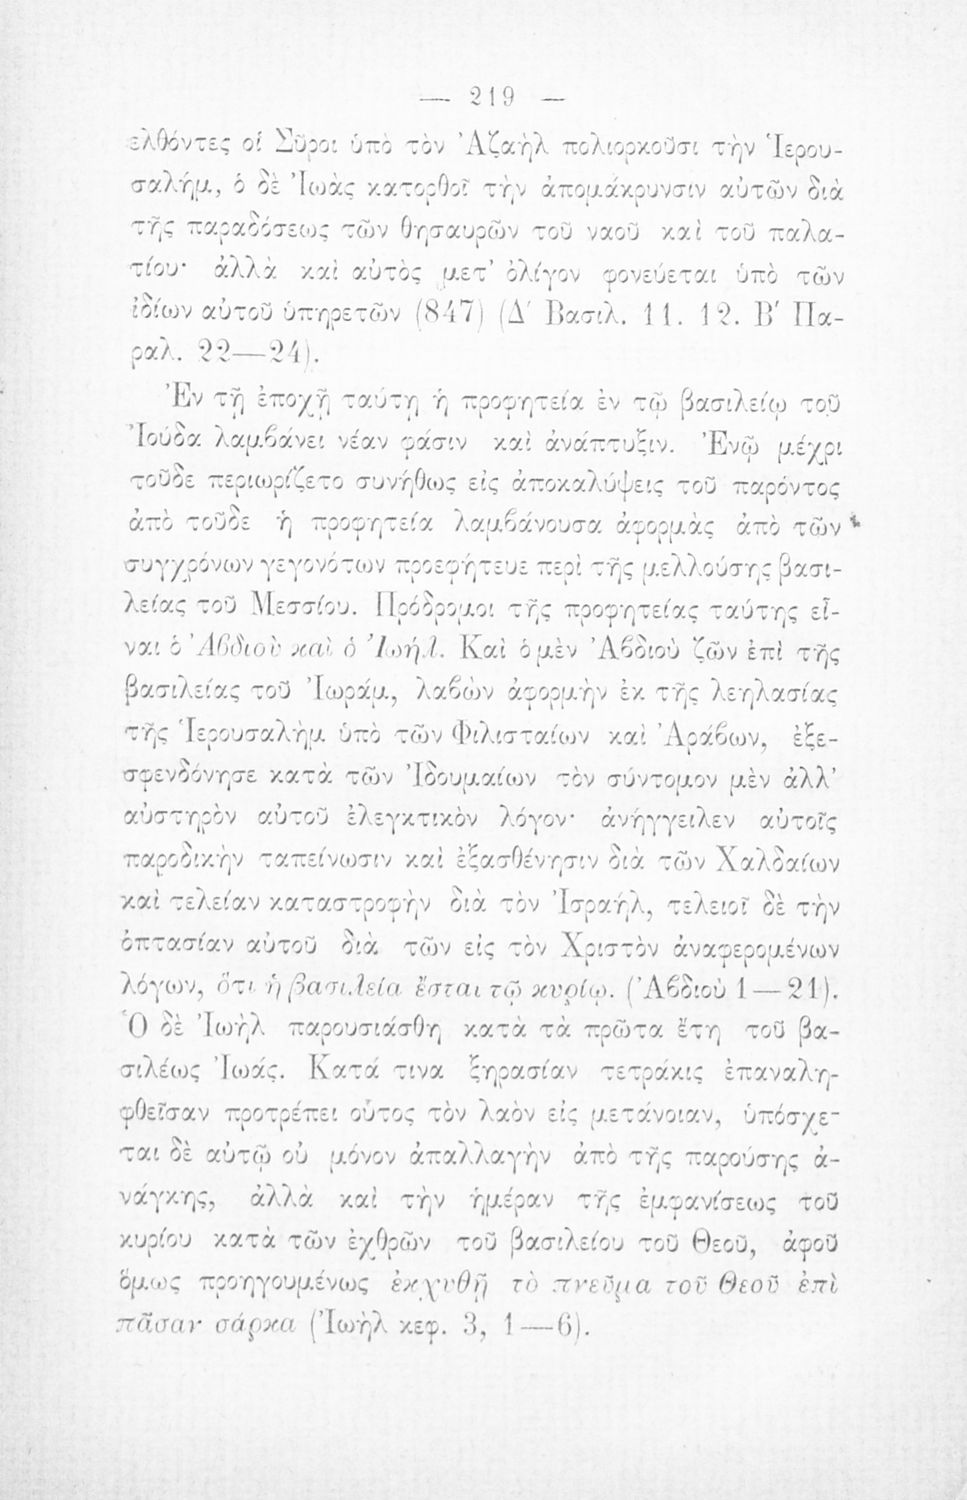 — 219 —
ελθόντες οἱ Σῦροι ὑπὸ τὸν Ἀζαὴλ πολιορκοῦσι τὴν Ἱερου-
σαλήμ, ὁ δὲ Ἰωὰς κατορθοῖ τὴν ἀπομάκρυνσιν αὐτῶν διὰ
τῆς παραδόσεως τῶν θησαυρῶν τοῦ ναοῦ καὶ τοῦ παλα-
τίου· ἀλλὰ καὶ αὐτὸς μετ' ὀλίγον φονεύεται ὑπὸ τῶν
ἰδίων αὐτοῦ ὑπηρετῶν (847) (Δ' Βασιλ. 11. 12. Β' Πα-
ραλ. 22—24).
Ἐν τῇ ἐποχῇ ταύτῃ ἡ προφητεία ἐν τῷ βασιλείῳ τοῦ
Ἰούδα λαμβάνει νέαν φάσιν καὶ ἀνάπτυξιν. Ἐνῷ μέχρι
τοῦδε περιωρίζετο συνήθως εἰς ἀποκαλύψεις τοῦ παρόντος
ἀπὸ τοῦδε ἡ προφητεία λαμβάνουσα ἀφορμὰς ἀπὸ τῶν
συγχρόνων γεγονότων προεφήτευε περὶ τῆς μελλούσης βασι-
λείας τοῦ Μεσσίου. Πρόδρομοι τῆς προφητείας ταύτης εἶ-
ναι ὁ Ἀβδιοὺ καὶ ὁ Ἰωήλ. Καὶ ὁ μὲν Ἀβδιοὺ ζῶν ἐπὶ τῆς
βασιλείας τοῦ Ἰωράμ, λαβὼν ἀφορμὴν ἐκ τῆς λεηλασίας
τῆς Ἱερουσαλὴμ ὑπὸ τῶν Φιλισταίων καὶ Ἀράβων, ἐξε-
σφενδόνησε κατὰ τῶν Ἰδουμαίων τὸν σύντομον μὲν ἀλλ'
αὐστηρὸν αὐτοῦ ἐλεγκτικὸν λόγον· ἀνήγγειλεν αὐτοῖς
παροδικὴν ταπείνωσιν καὶ ἐξασθένησιν διὰ τῶν Χαλδαίων
καὶ τελείαν καταστροφὴν διὰ τὸν Ἰσραήλ, τελειοῖ δὲ τὴν
ὀπτασίαν αὐτοῦ διὰ τῶν εἰς τὸν Χριστὸν ἀναφερομένων
λόγων, ὅτι ἡ βασιλεία ἔσται τῷ κυρίῳ. (Ἀβδιοὺ 1—21).
Ὁ δὲ Ἰωὴλ παρουσιάσθη κατὰ τὰ πρῶτα ἔτη τοῦ βα-
σιλέως Ἰωάς. Κατά τινα ξηρασίαν τετράκις ἐπαναλη-
φθεῖσαν προτρέπει οὗτος τὸν λαὸν εἰς μετάνοιαν, ὑπόσχε-
ται δὲ αὐτῷ οὐ μόνον ἀπαλλαγὴν ἀπὸ τῆς παρούσης ἀ-
νάγκης, ἀλλὰ καὶ τὴν ἡμέραν τῆς ἐμφανίσεως τοῦ
κυρίου κατὰ τῶν ἐχθρῶν τοῦ βασιλείου τοῦ Θεοῦ, ἀφοῦ
ὅμως προηγουμένως ἐκχυθῇ τὸ πνεῦμα τοῦ Θεοῦ ἐπὶ
πᾶσαν σάρκα (Ἰωὴλ κεφ. 3, 1—6).